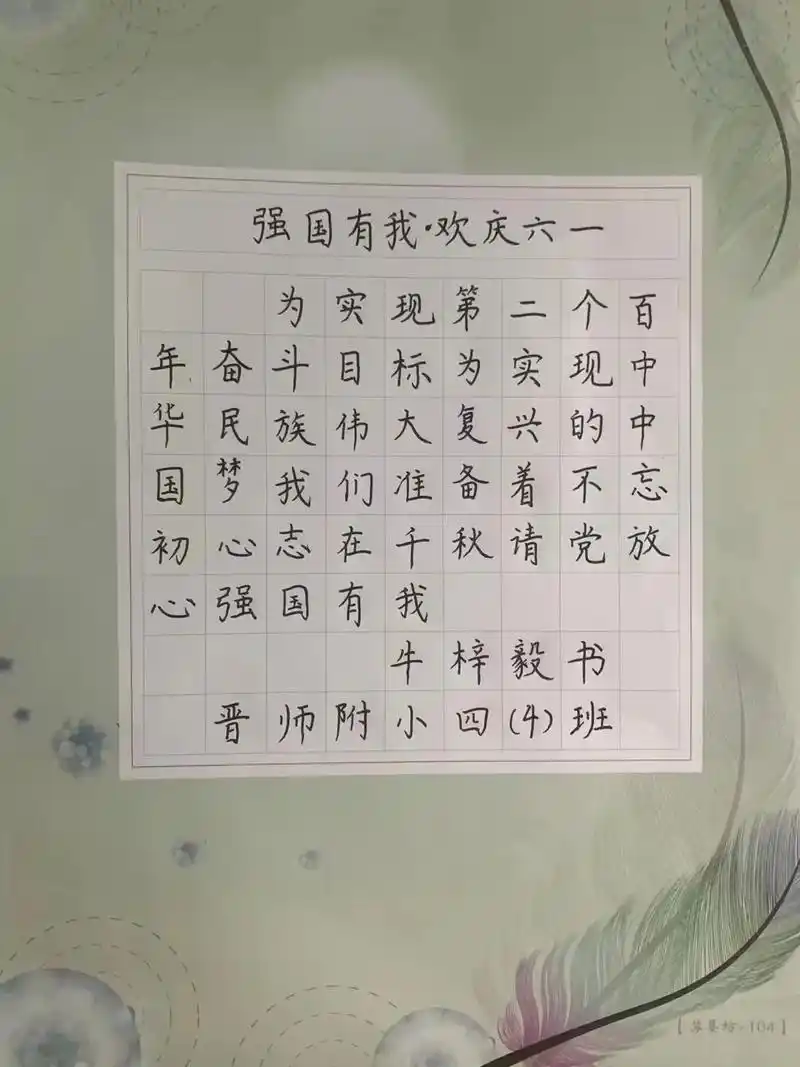 强国有我·欢庆六一
为实现第二个百
年奋斗目标为实现中
华民族伟大复兴的中
国梦我们准备着不忘
初心志在千秋请党放
心强国有我
牛梓毅书
晋师附小四(4)班